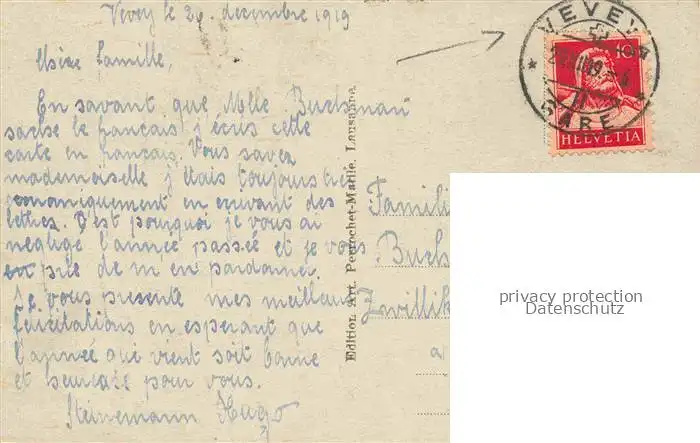 Vevey le 29. decembre 1919
Chère famille,
En savant que Mlle Buchsman
sache le français j'écris cette
carte en français. Vous savez
mademoiselle j'étais toujours très
economiquement en ecrivant des
lettres. C'est pourquoi je vous ai
néglige l'année passée et je vous
en prie de m'en pardonner.
Je vous presente mes meilleurs
félicitations en esperant que
l'année qui vient soit bonne
et heureuse pour vous.
Steinemann Hugo
Edition Art. Perrochet-Matile, Lausanne
VEVEY
GARE
10
HELVETIA
Famili
Buchs
Zwillik
a
privacy protection
Datenschutz